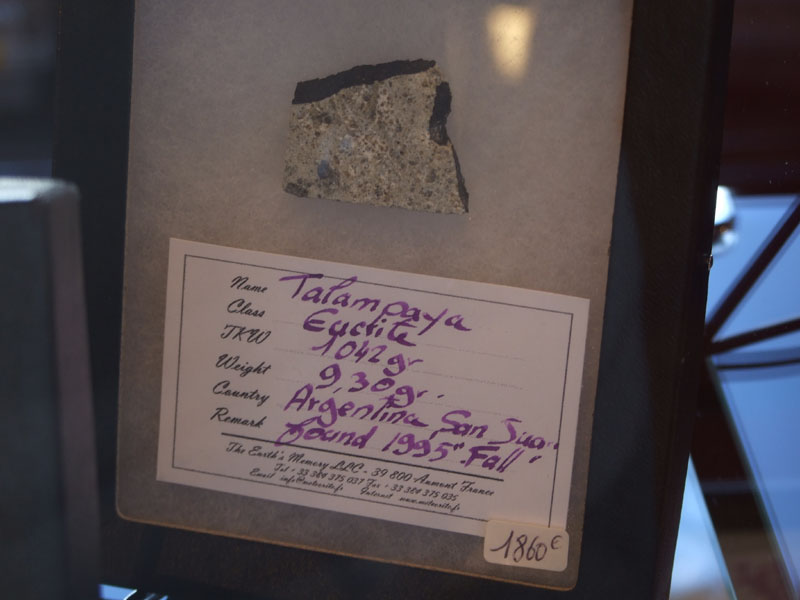 Name Talampaya
Class Eucrite
TKW 1042 gr
Weight 9,30 gr.
Country Argentina San Juan
Remark found 1995 "Fall"
The Earth's Memory LLC - 39 800 Aumont France
Tel - 33 384 375 037 Fax - 33 384 375 035
Email info@meteorite.fr Internet www.meteorite.fr
1860€